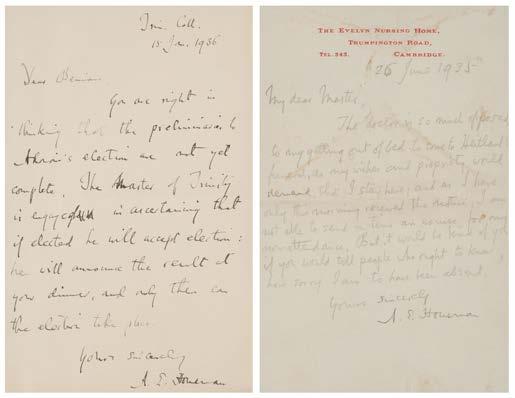 Trin. Coll.
15 Jan. 1936
Dear Benian.
You are right in
thinking that the preliminaries to
election are not yet
complete. The Master of Trinity
is engaged in ascertaining that
if elected he will accept election:
he will announce the result at
your dinner, and only then can
the election take place.
Yours sincerely
A. E. Housman
THE EVELYN NURSING HOME,
TRUMPINGTON ROAD,
TEL. 343. CAMBRIDGE.
26 June 1935
My dear Master,
The doctor is so much opposed
to my getting out of bed to come to
funeral, as my wishes and propriety would
demand, that I stay here; and as I have
only this morning received the notice, I am
not able to send in time an excuse for my
non-attendance. But it would be kind of you
if you would tell people who ought to know
how sorry I am to have been absent.
Yours sincerely
A. E. Housman